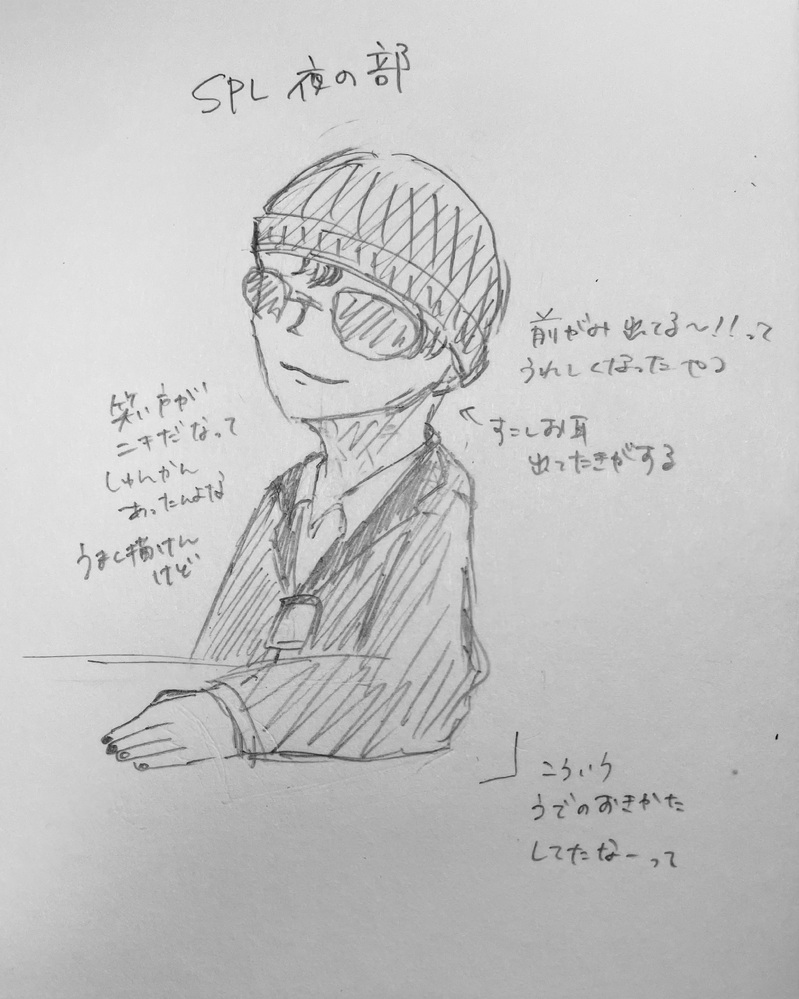 SPL 夜の部
前がみ 出てる～!!って
うれしくなったやつ
←すこしお耳
出ってたきがする
笑い声が
ニキだなって
しゅんかん
あったんよな
うまく描けん
けど
こういう
うでのおきかた
してたなーって